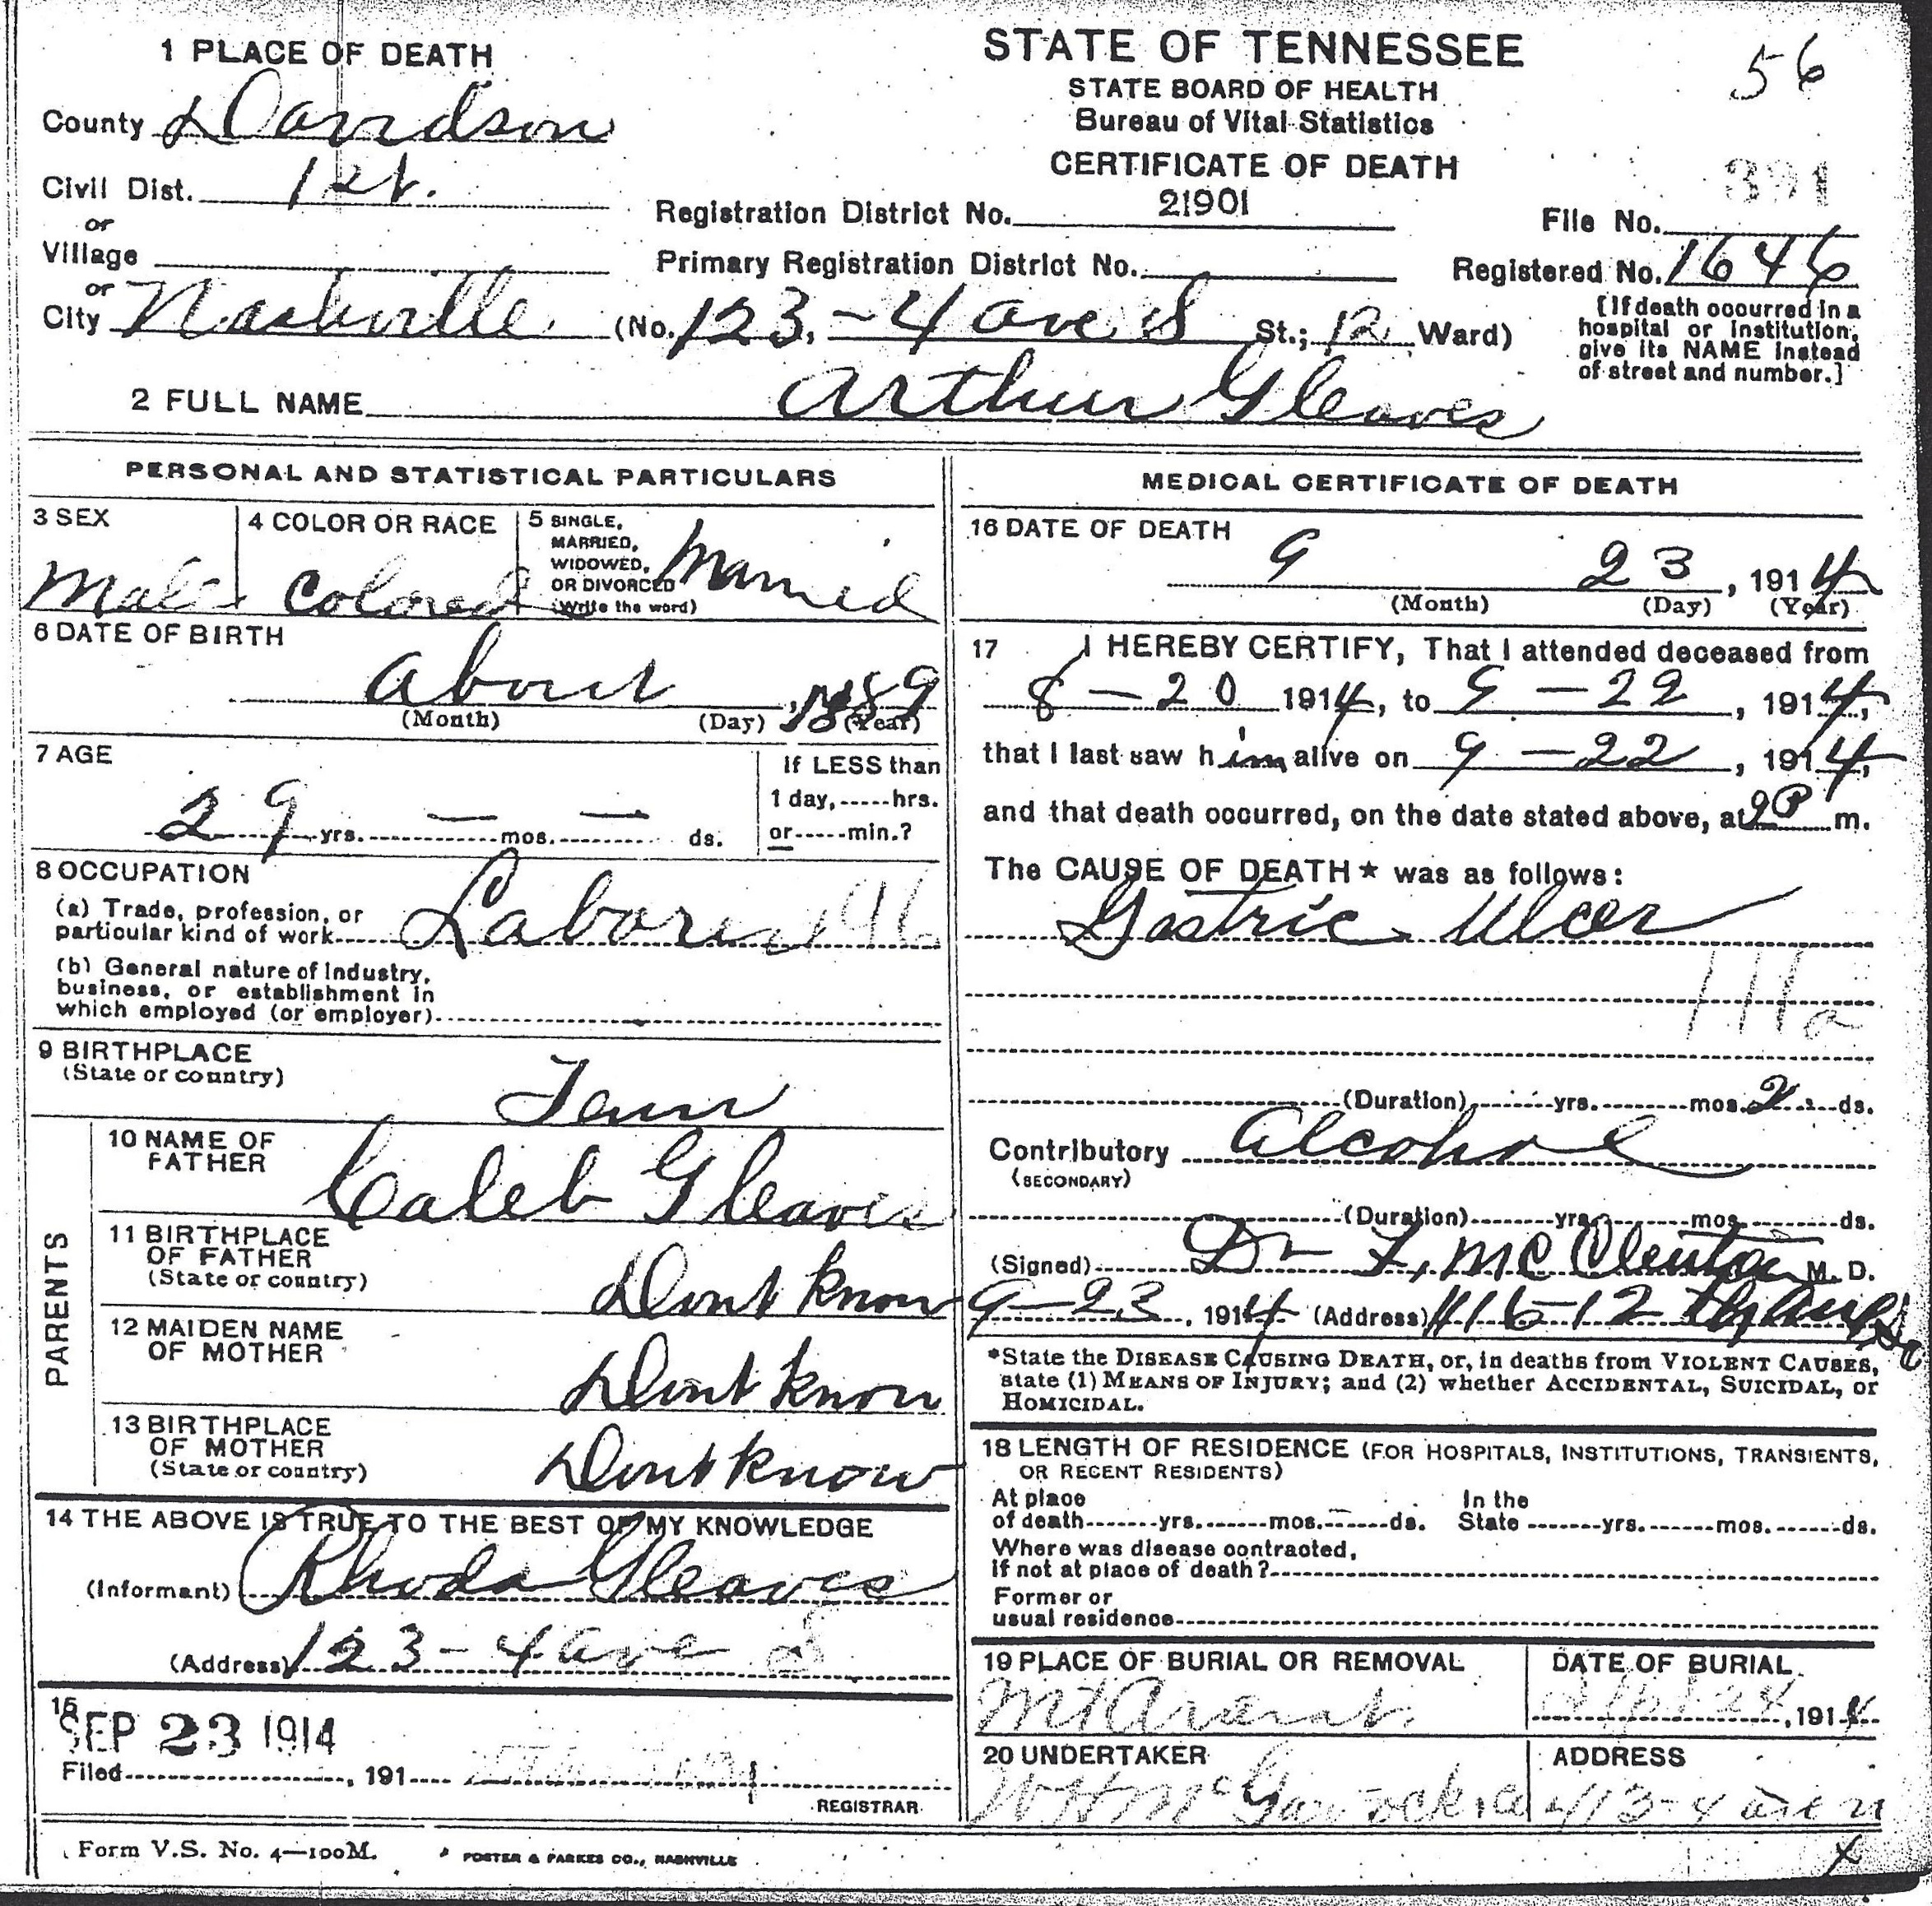 1 PLACE OF DEATH
County Davidson
Civil Dist. 1st.
or
Village
or
City Nashville (No. 123, - 4 ave S St.; 12 Ward)
STATE OF TENNESSEE
STATE BOARD OF HEALTH
Bureau of Vital Statistics
CERTIFICATE OF DEATH
56
391
Registration District No. 21901
File No.
Primary Registration District No.
Registered No. 1646
[If death occurred in a
hospital or institution,
give its NAME instead
of street and number.]
2 FULL NAME Arthur Gleaves
PERSONAL AND STATISTICAL PARTICULARS
3 SEX
Male
4 COLOR OR RACE
Colored
5 SINGLE,
MARRIED,
WIDOWED,
OR DIVORCED
(Write the word)
Married
6 DATE OF BIRTH
about , 1889
(Month) (Day) (Year)
7 AGE
29 yrs. — mos. — ds.
If LESS than
1 day, hrs.
or min.?
8 OCCUPATION
(a) Trade, profession, or
particular kind of work Laborer
(b) General nature of Industry,
business, or establishment in
which employed (or employer)
9 BIRTHPLACE
(State or country)
Tenn
PARENTS
10 NAME OF
FATHER
Caleb Gleaves
11 BIRTHPLACE
OF FATHER
(State or country)
Dont know
12 MAIDEN NAME
OF MOTHER
Dont know
13 BIRTHPLACE
OF MOTHER
(State or country)
Dont know
14 THE ABOVE IS TRUE TO THE BEST OF MY KNOWLEDGE
(Informant) Rhoda Gleaves
(Address) 123 - 4 ave S
15
SEP 23 1914
Filed , 191
REGISTRAR
MEDICAL CERTIFICATE OF DEATH
16 DATE OF DEATH
9 23, 1914
(Month) (Day) (Year)
17 I HEREBY CERTIFY, That I attended deceased from
8 - 20 1914, to 9 - 22, 1914,
that I last saw him alive on 9 - 22, 1914,
and that death occurred, on the date stated above, at P m.
The CAUSE OF DEATH* was as follows:
Gastric Ulcer
111a
(Duration) yrs. mos. 2 ds.
Contributory Alcohol
(SECONDARY)
(Duration) yrs. mos. ds.
(Signed) Dr F, M. D.
9-23, 1914 (Address) 12 th Ave So
*State the DISEASE CAUSING DEATH, or, in deaths from VIOLENT CAUSES,
state (1) MEANS OF INJURY; and (2) whether ACCIDENTAL, SUICIDAL, or
HOMICIDAL.
18 LENGTH OF RESIDENCE (FOR HOSPITALS, INSTITUTIONS, TRANSIENTS,
OR RECENT RESIDENTS)
At place
of death yrs. mos. ds.
In the
State yrs. mos. ds.
Where was disease contracted,
if not at place of death?
Former or
usual residence
19 PLACE OF BURIAL OR REMOVAL
Mt Ararat
DATE OF BURIAL
, 1914
20 UNDERTAKER
W H McGavock
ADDRESS
413 - 4 ave n
Form V.S. No. 4—100M.
FOSTER & PARKES CO., NASHVILLE
x